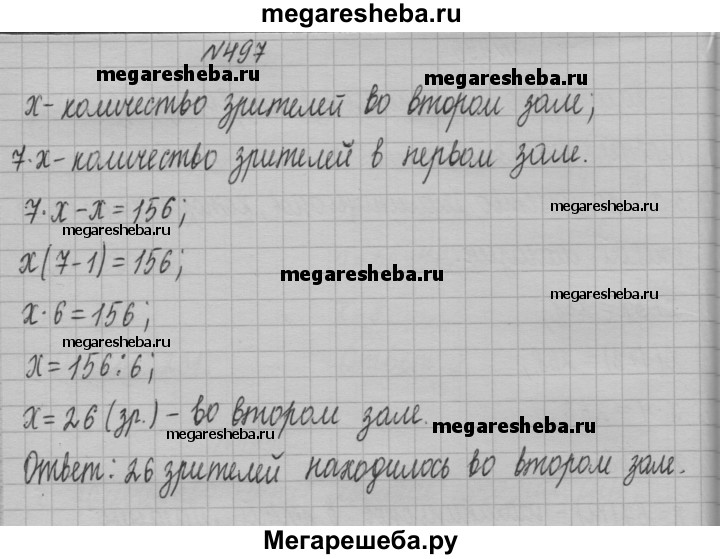 megaresheba.ru
№497
megaresheba.ru megaresheba.ru
x - количество зрителей во втором зале;
7·x - количество зрителей в первом зале.
7·x - x = 156;
megaresheba.ru
x(7-1) = 156;
megaresheba.ru
megaresheba.ru
x·6 = 156;
megaresheba.ru
x = 156:6;
x = 26 (зр.) - во втором зале.
megaresheba.ru megaresheba.ru
Ответ: 26 зрителей находилось во втором зале.
Мегарешеба.ру